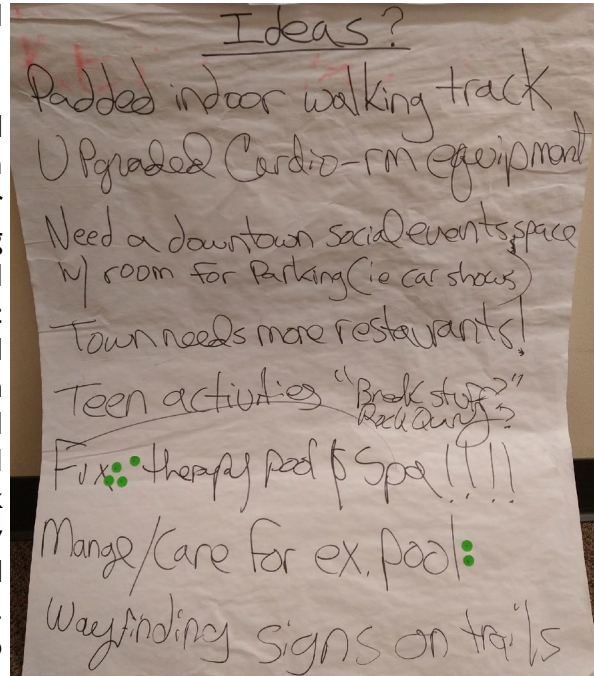 Ideas?
Padded indoor walking track
Upgraded Cardio-rm equipment
Need a downtown social events space
w/ room for Parking (ie car shows)
Town needs more restaurants!
Teen activities "Break stuff?"
Rock Quarry?
Fix therapy pool & Spa!!!!
Mange/Care for ex. pool
Wayfinding signs on trails